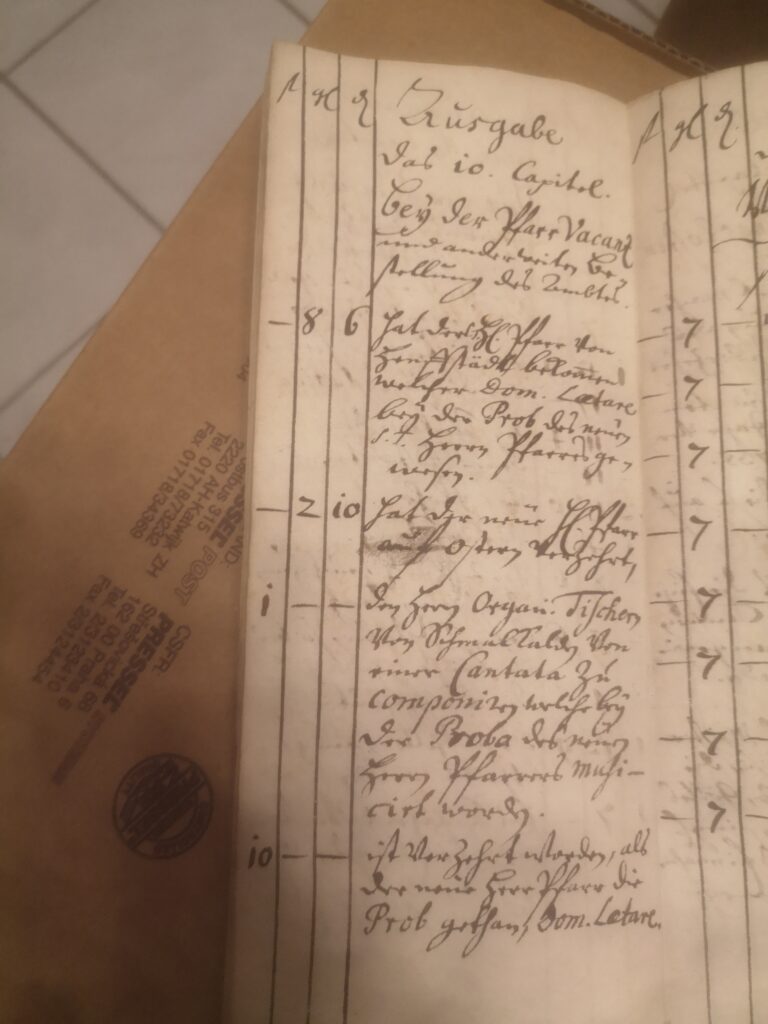 f gl d
Ausgabe
das 10. Capitel.
bey der Pfarr Vacanz
und anderweiten Be-
stellung des Ambtes.
— 8 6 hat der H. Pfarr von
Henffstädt bekommen
welcher Dom. Lætare
bey der Prob des neuen
Herrn Pfarrers ge-
wesen.
— 2 10 hat der neue H. Pfarr
auf Ostern verzehrt,
1 — — dem Herrn Organ. Tischern
von Schmalkalden von
einer Cantata zu
componiren welche bey
der Proba des neuen
Herrn Pfarrers musi-
cirt worden.
10 — — ist verzehrt worden, als
der neue Herr Pfarr die
Prob gethan, Dom. Lætare.
f gl d
— 7
— 7
— 7
— 7
— 7
— 7
— 7
— 7
2220 AH-Katwijk ZH
Tel. 01718/73232
Fax 01718/34369
POST
CSFR:
PRESSET
162 00 Praha 6